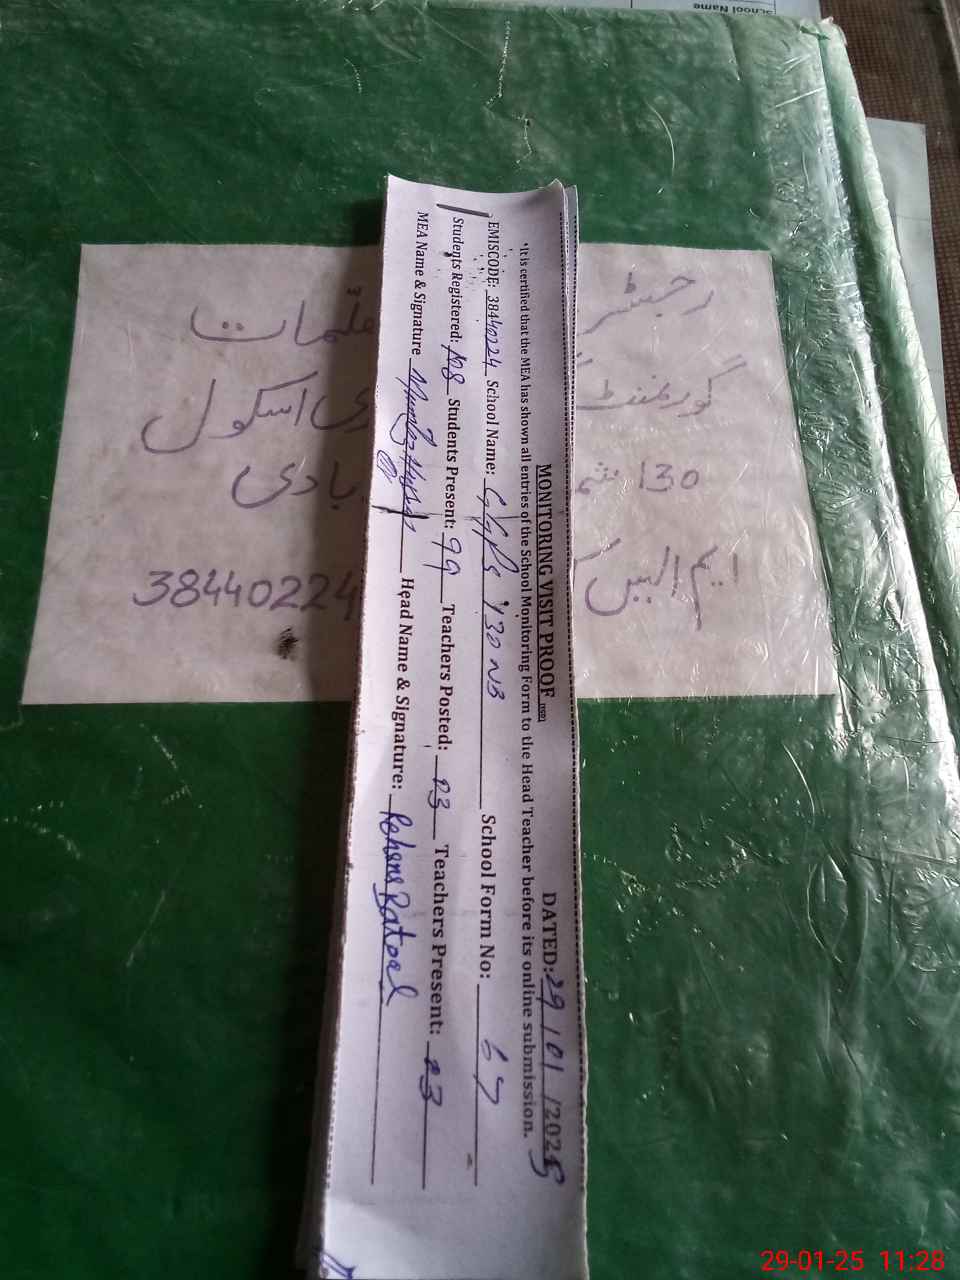 School Name
MONITORING VISIT PROOF DATED: 29/01/2025
*It is certified that the MEA has shown all entries of the School Monitoring Form to the Head Teacher before its online submission.
EMISCODE: 38440224 School Name: 130 NB School Form No: 67
Students Registered: Students Present: 99 Teachers Posted: 03 Teachers Present: 03
MEA Name & Signature Head Name & Signature: Rehana Batool
رجسٹر
گورنمنٹ اسکول
130
ایم ایس
38440224
29-01-25 11:28